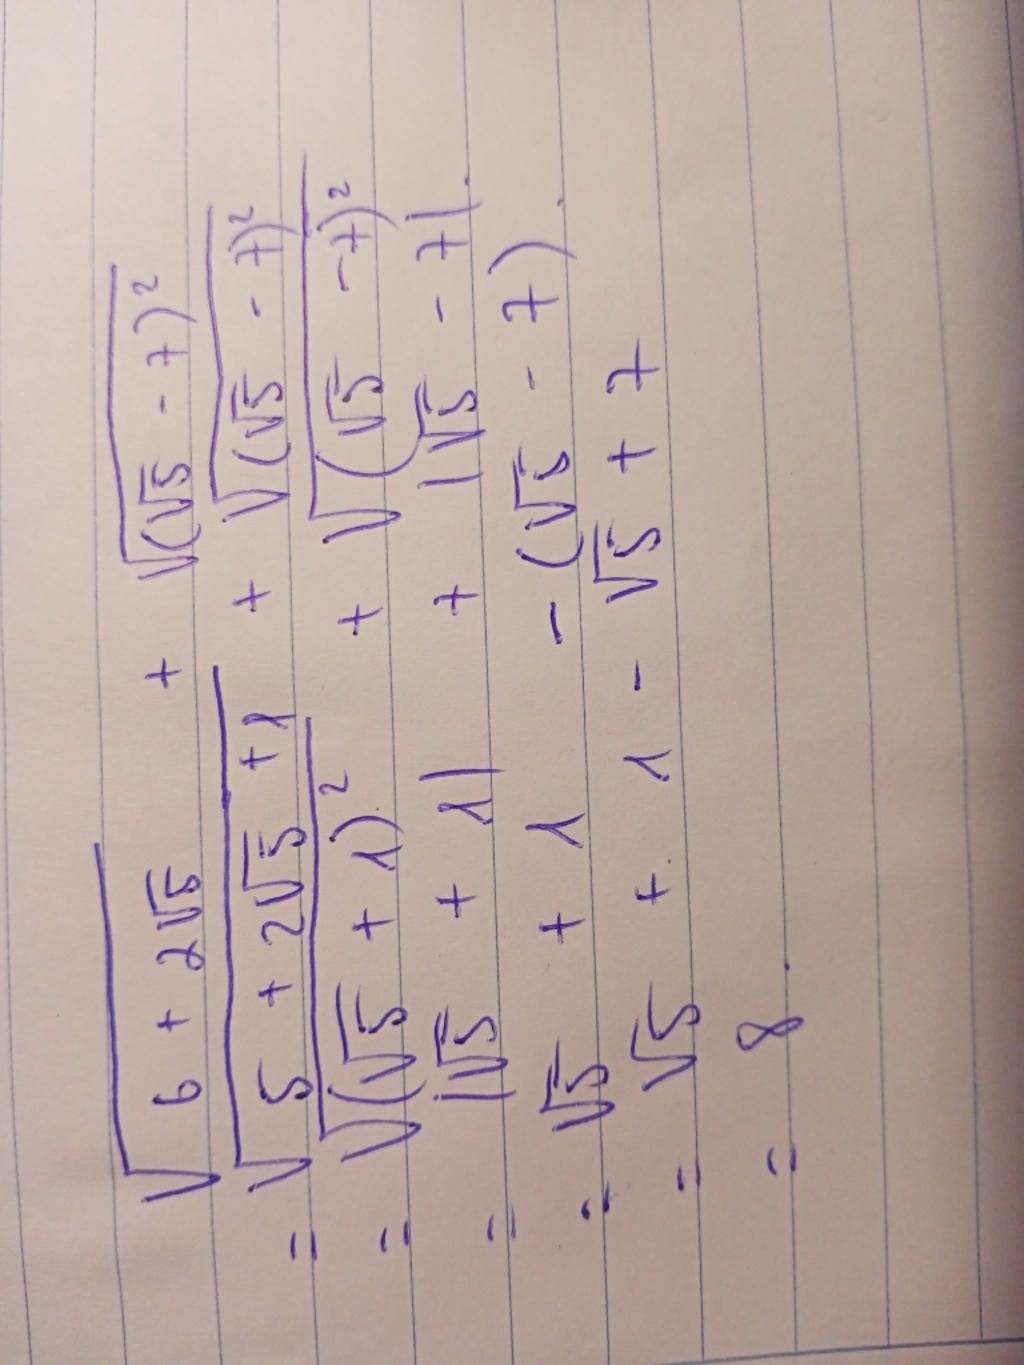 √(6 + 2√5) + √((√5 - 7)²)
= √(5 + 2√5 + 1) + √((√5 - 7)²)
= √((√5 + 1)²) + √((√5 - 7)²)
= |√5 + 1| + |√5 - 7|.
= √5 + 1 - (√5 - 7).
= √5 + 1 - √5 + 7
= 8.